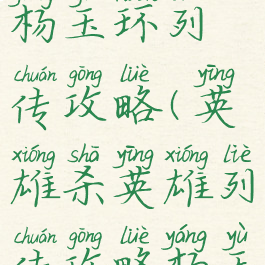 杨玉环列
chuán gōng lüè yīng
传攻略(英
xióng shā yīng xióng liè
雄杀英雄列
chuán gōng lüè yáng yù
传攻略杨玉